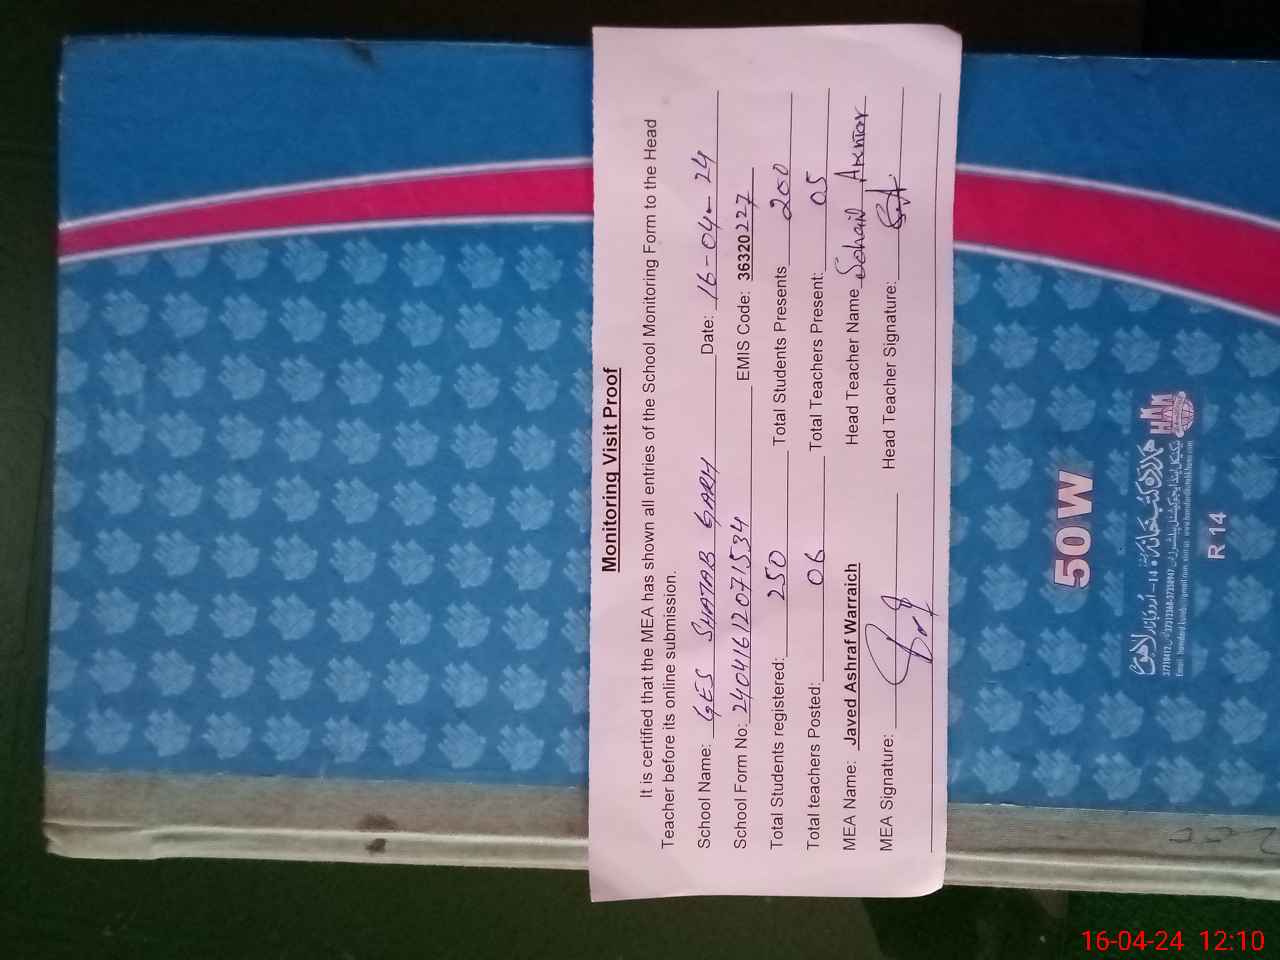 Monitoring Visit Proof
It is certified that the MEA has shown all entries of the School Monitoring Form to the Head
Teacher before its online submission.
School Name: GES SHATAB GARH Date: 16-04-24
School Form No: 24041612071534 EMIS Code: 36320227
Total Students registered: 250 Total Students Presents 200
Total teachers Posted: 06 Total Teachers Present: 05
MEA Name: Javed Ashraf Warraich Head Teacher Name Sohail Akhtar
MEA Signature: Head Teacher Signature: S.A
50 W
HKK
R 14
16-04-24 12:10